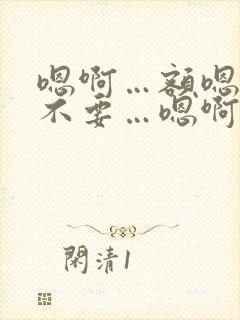 嗯啊…额嗯
不要…嗯啊
閑清1